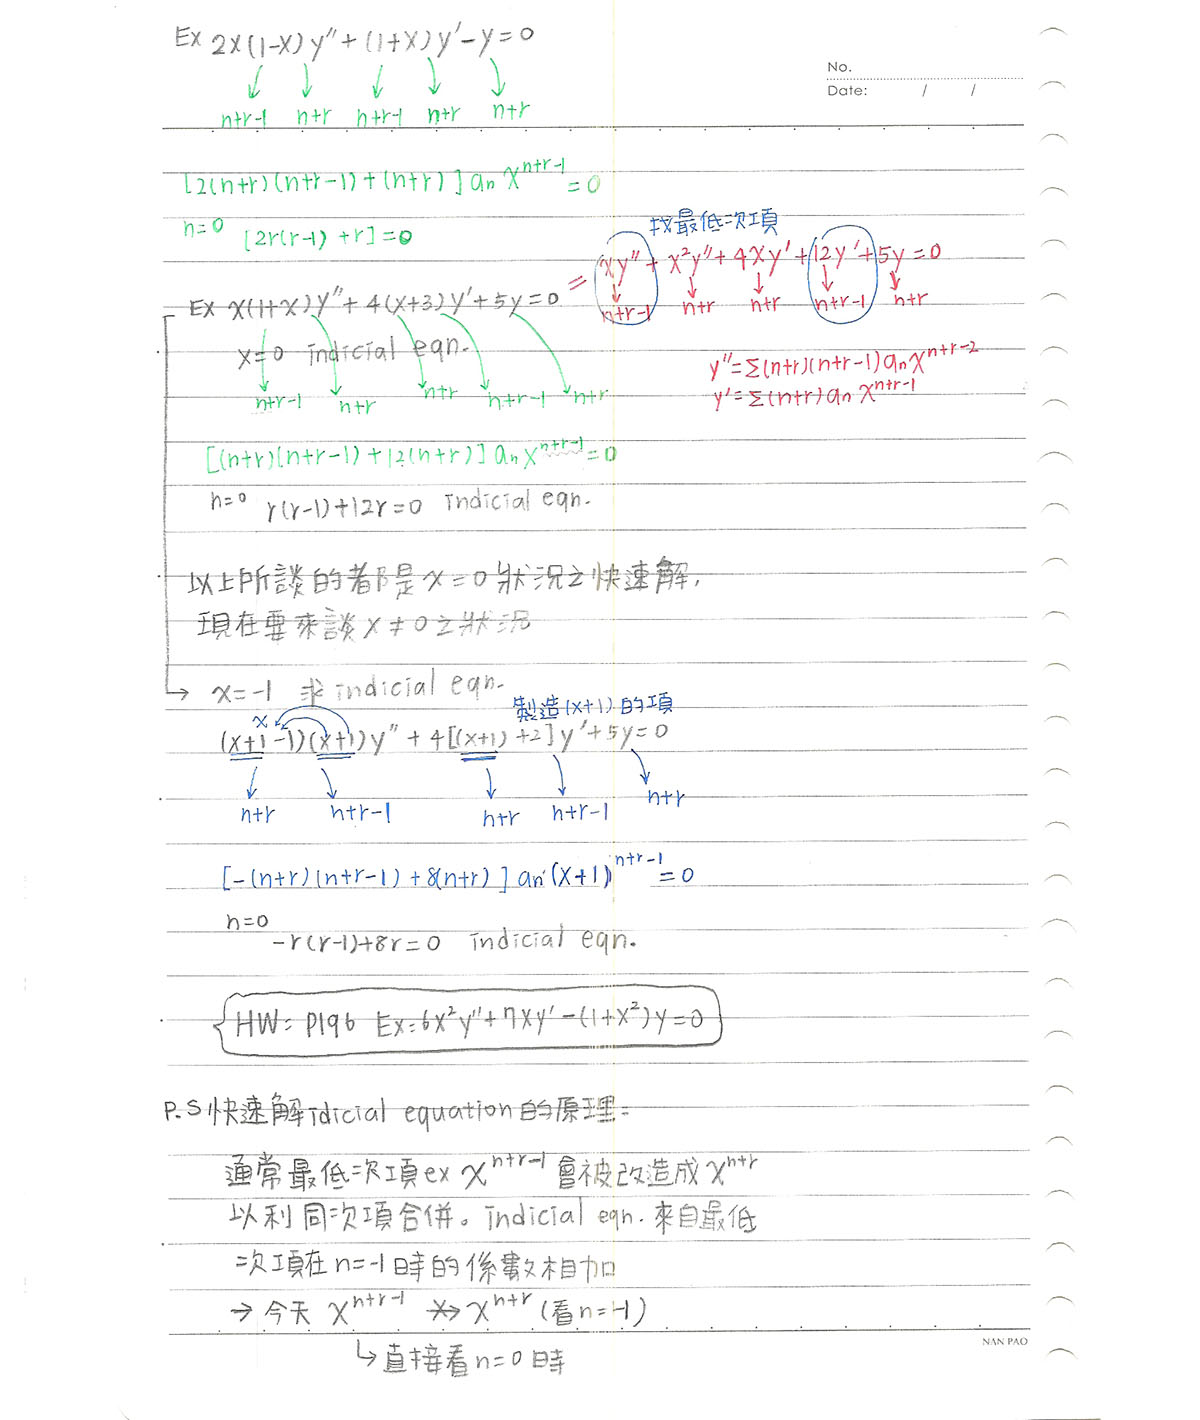 Ex 2x(1-x)y''+(1+x)y'-y=0
No.
Date: / /
n+r-1 n+r n+r-1 n+r n+r
[2(n+r)(n+r-1)+(n+r)]an x^{n+r-1}=0
n=0 [2r(r-1)+r]=0
找最低次項
= xy''+x²y''+4xy'+12y'+5y=0
n+r-1 n+r n+r n+r-1 n+r
Ex x(1+x)y''+4(x+3)y'+5y=0
x=0 indicial eqn.
n+r-1 n+r n+r n+r-1 n+r
y''=Σ(n+r)(n+r-1)an x^{n+r-2}
y'=Σ(n+r)an x^{n+r-1}
[(n+r)(n+r-1)+12(n+r)]an x^{n+r-1}=0
n=0 r(r-1)+12r=0 indicial eqn.
以上所談的都是x=0狀況之快速解,
現在要來談x≠0之狀況
→ x=-1 求indicial eqn.
製造(x+1)的項
x
(x+1-1)(x+1)y''+4[(x+1)+2]y'+5y=0
n+r n+r-1 n+r n+r-1 n+r
[-(n+r)(n+r-1)+8(n+r)]an(x+1)^{n+r-1}=0
n=0
-r(r-1)+8r=0 indicial eqn.
HW: P196 Ex:6x²y''+7xy'-(1+x²)y=0
P.S快速解idicial equation的原理:
通常最低次項ex x^{n+r-1}會被改造成x^{n+r}
以利同次項合併。indicial eqn.來自最低
次項在n=-1時的係數相加
→今天 x^{n+r-1} ↛ x^{n+r}(看n=-1)
↳直接看n=0時
NAN PAO